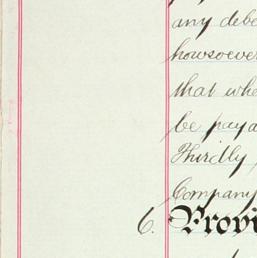 any debe
howsoever
that whe
be paya
Thirdly
Company
6. Provi